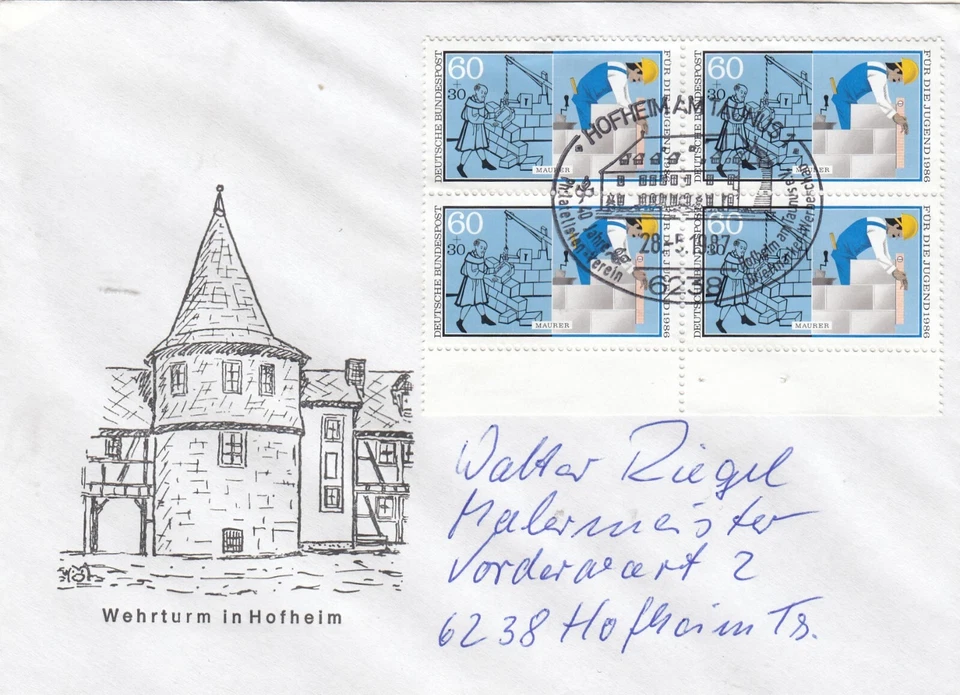 DEUTSCHE BUNDESPOST
60
+
30
MAURER
FÜR DIE JUGEND 1986
DEUTSCHE BUNDESPOST
60
+
30
MAURER
FÜR DIE JUGEND 1986
DEUTSCHE BUNDESPOST
60
+
30
MAURER
FÜR DIE JUGEND 1986
DEUTSCHE BUNDESPOST
60
+
30
MAURER
FÜR DIE JUGEND 1986
HOFHEIM AM TAUNUS 1
40 Jahre
Philatelisten-Verein
Hofheim am Taunus e.V.
28.-5.1987
6238
Wehrturm in Hofheim
Walter Riegel
Malermeister
Vorderwart 2
6238 Hofheim Ts.